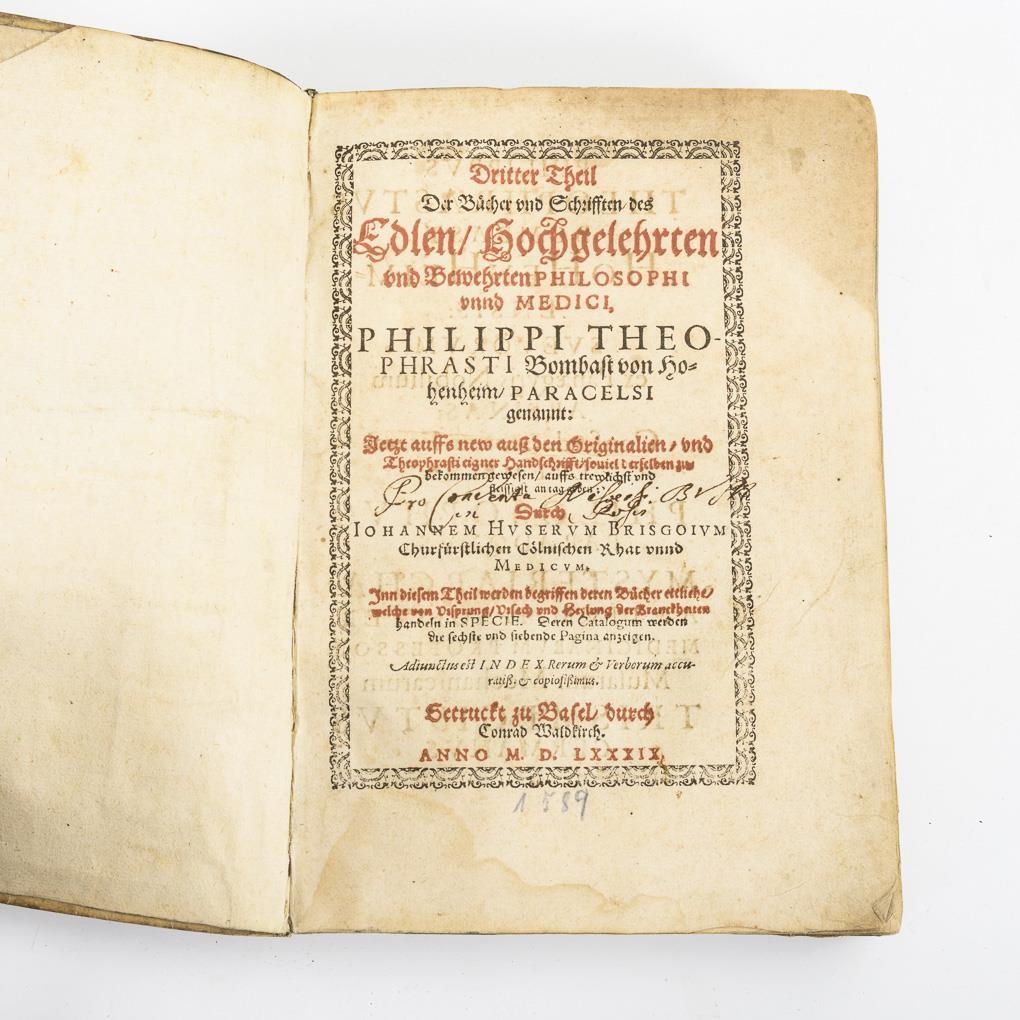 Dritter Theil
Der Bücher vnd Schrifften/des
Edlen/ Hochgelehrten
vnd Bewehrten PHILOSOPHI
vnnd MEDICI,
PHILIPPI THEO-
PHRASTI Bombast von Ho-
henheim/ PARACELSI
genannt:
Jetzt auffs new auß den Originalien/ vnd
Theophrasti eigner Handschrifft/souiel derselben zu
bekommen gewesen/ auffs trewlichst vnd
fleissigst an tag geben:
Pro
in
Durch
IOHANNEM HVSERVM BRISGOIVM
Churfürstlichen Cölnischen Rhat vnnd
MEDICVM.
Inn diesem Theil werden begriffen deren Bücher ettliche/
welche von Vrsprung/ Vrsach vnd Heylung der Kranckheiten
handeln in SPECIE. Deren Catalogum werden
die sechste vnd siebende Pagina anzeigen.
Adiunctus est INDEX Rerum & Verborum accu-
ratiß: & copiosißimus.
Getruckt zu Basel/ durch
Conrad Waldkirch.
ANNO M. D. LXXXIX.
1589